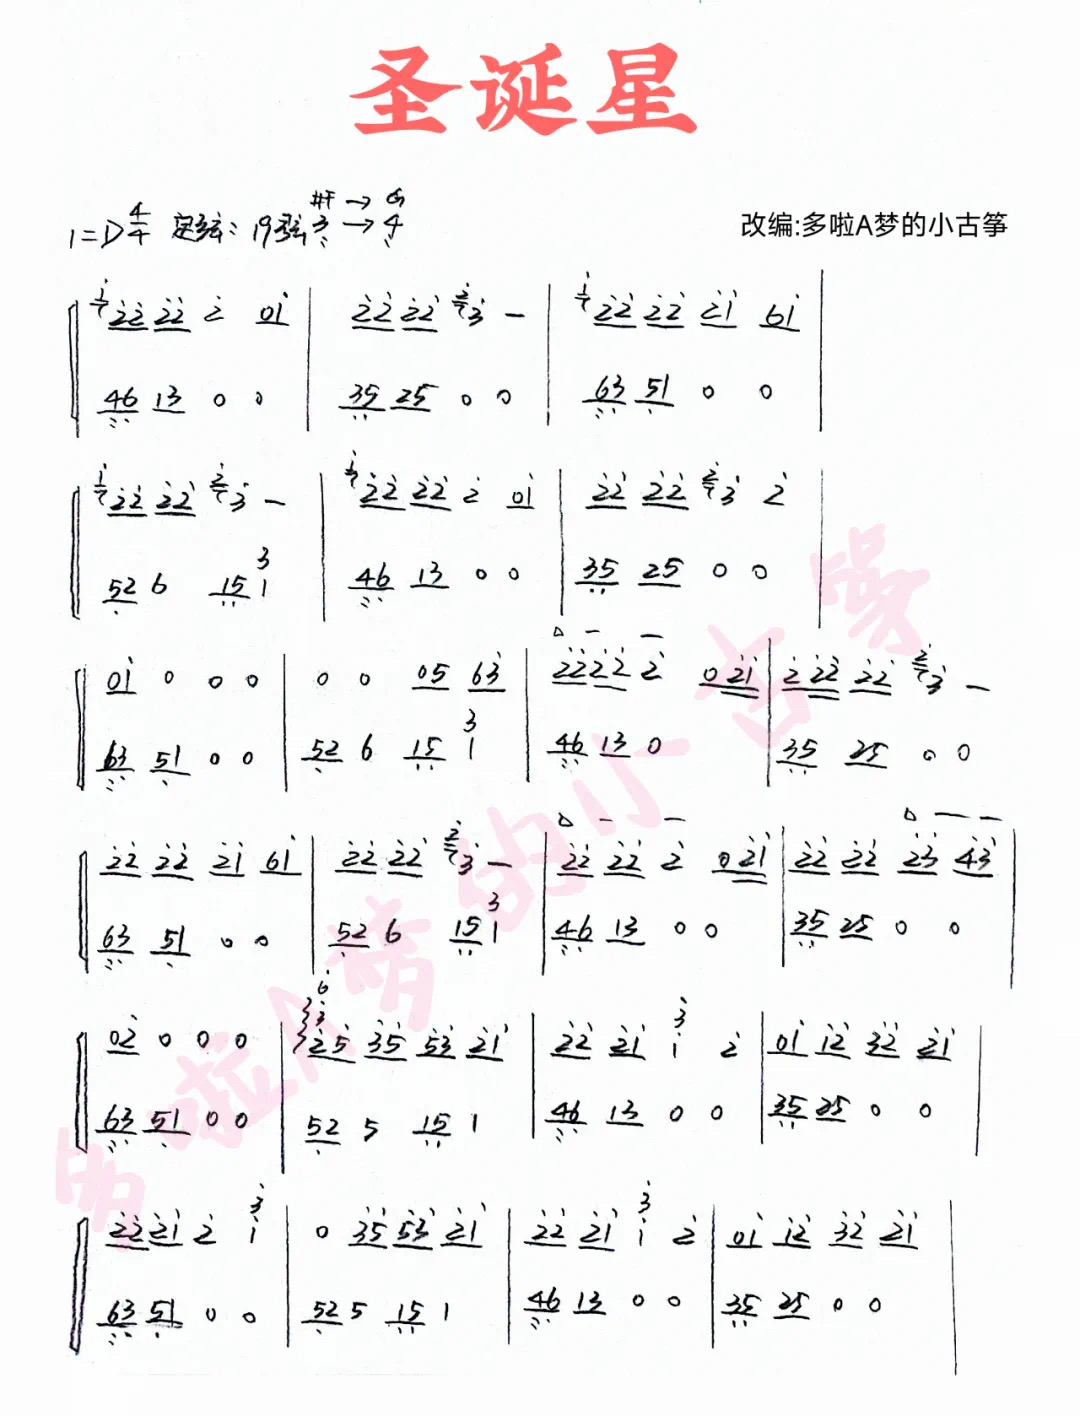 圣诞星
#F → G
1=D 4/4 定弦: 19弦 3 → 4
改编:多啦A梦的小古筝
1 22 22 2 01 | 22 22 2 3 — | 1 22 22 21 61 |
46 13 0 0 | 35 25 0 0 | 63 51 0 0 |
1 22 22 2 3 — | 1 22 22 2 01 | 22 22 2 3 2 |
3
52 6 15 1 | 46 13 0 0 | 35 25 0 0 |
01 0 0 0 | 0 0 05 63 | 22 22 2 021 | 2 22 22 2 3 —
3
63 51 0 0 | 52 6 15 1 | 46 13 0 | 35 25 0 0
22 22 21 61 | 22 22 2 3 — | 22 22 2 021 | 22 22 23 43 |
3
63 51 0 0 | 52 6 15 1 | 46 13 0 0 | 35 25 0 0 |
6
3 3
02 0 0 0 | 25 35 53 21 | 22 21 1 2 | 01 12 32 21 |
63 51 0 0 | 52 5 15 1 | 46 13 0 0 | 35 25 0 0 |
3 3
22 21 2 1 | 0 35 53 21 | 22 21 1 2 | 01 12 32 21 |
63 51 0 0 | 52 5 15 1 | 46 13 0 0 | 35 25 0 0 |
多啦A梦的小古筝